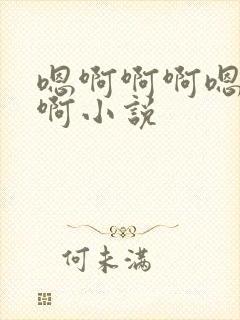 嗯啊啊啊嗯
啊小说
何未满